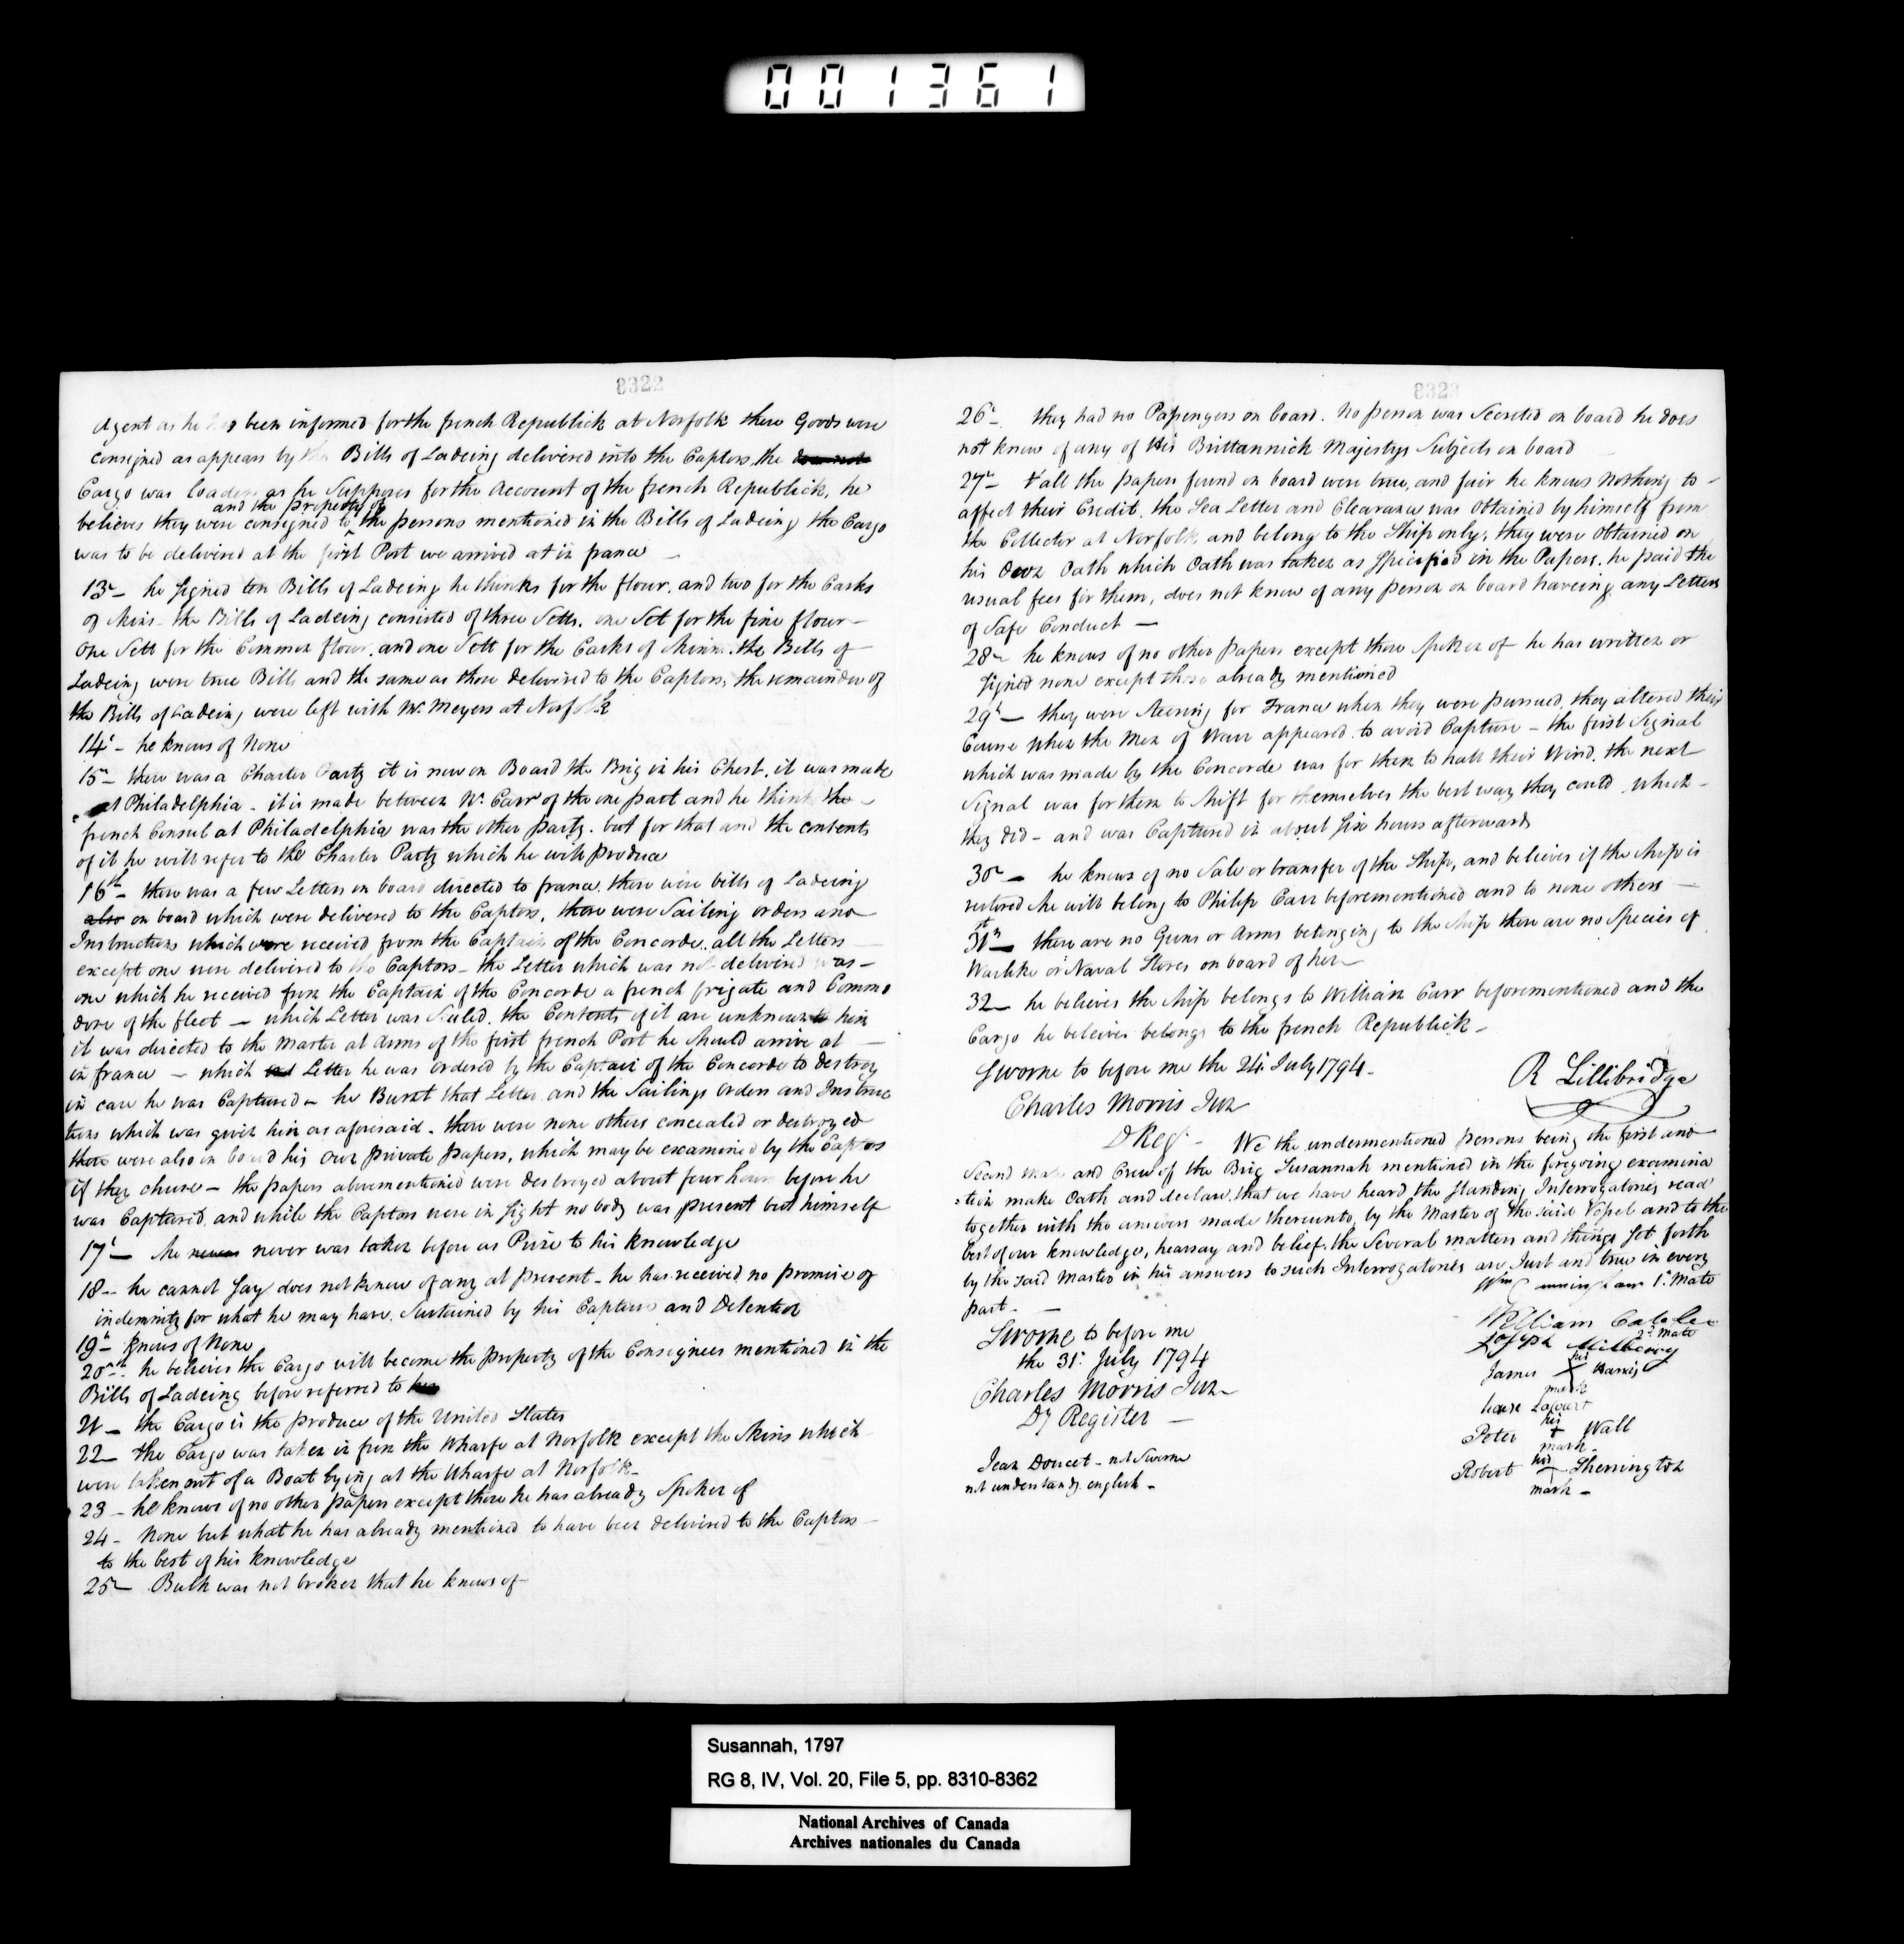 001361
8322
Agent as he has been informed for the french Republick at Norfolk these Goods were
Consigned as appears by the Bills of Ladeing delivered into the Captors, the
Cargo was loaden as he Supposes for the Account of the french Republick, he
and the property of
believes they were consigned to the persons mentioned in the Bills of Ladeing the Cargo
was to be delivered at the first Port we arrived at in france —
13th he signed ten Bills of Ladeing he thinks for the flour, and two for the Casks
of Skins - the Bills of Ladeing consisted of three Setts, one Set for the fine flour —
One Sett for the Common flour, and one Sett for the Casks of Skinns. the Bills of
Ladeing were true Bills and the same as those delivered to the Captors, the remainder of
the Bills of Ladeing were left with Mr. Meyers at Norfolk
14th - he knows of None
15th - there was a Charter Party it is now on Board the Brig in his Chest. it was made
at Philadelphia - it is made between Wm. Carr of the one part and he thinks the —
french Consul at Philadelphia was the other party. but for that and the contents
of it he will refer to the Charter Party which he will produce
16th - there was a few Letters on board directed to france. there were bills of Ladeing
also on board which were delivered to the Captors, there were Sailing orders and
Instructions which were received from the Captain of the Concorde. all the Letters
except one were delivered to the Captors - the Letter which was not delivered was —
one which he received from the Captain of the Concorde a french frigate and Commo
dore of the fleet — which Letter was Sealed. the Contents of it are unknown to him
it was directed to the Master at Arms of the first french Port he should arrive at —
in france — which Letter he was ordered by the Captain of the Concorde to destroy
in case he was Captured - he Burnt that Letter and the Sailings orders and Instruc
tions which was given him as aforesaid. there were none others concealed or destroyed
there were also on board his own private papers, which may be examined by the Captors
if they chuse — the papers abovementioned were destroyed about four hours before he
was Captured, and while the Captors were in sight no body was present but himself
17th — she never never was taken before as Prize to his knowledge
18 - he cannot say does not know of any at present - he has received no promise of
indemnity for what he may have Sustained by his Capture and Detention
19th knows of None
20th - he believes the Cargo will become the property of the Consignees mentioned in the
Bills of Ladeing before referred to
21 - the Cargo is the produce of the United States
22 - the Cargo was taken in from the Wharfe at Norfolk except the Skins which
were taken out of a Boat lying at the Wharfe at Norfolk -
23 - he knows of no other papers except those he has already Spoken of
24 - None but what he has already mentioned to have been delivered to the Captors —
to the best of his knowledge
25th Bulk was not broken that he knows of
8323
26th they had no Passengers on board. no person was Secreted on board he does
not know of any of His Brittannick Majestys Subjects on board
27th all the papers found on board were true, and fair he knows Nothing to -
affect their Credit. the Sea Letter and Clearance was obtained by himself from
the Collector at Norfolk and belong to the Ship only, they were obtained on
his Own Oath which Oath was taken as specified in the Papers. he paid the
usual fees for them, does not know of any person on board haveing any Letters
of Safe Conduct —
28th he knows of no other papers except those Spoken of he has written or
signed none except those already mentioned
29th — they were steering for France when they were pursued, they altered their
Course when the Men of Warr appeared to avoid Capture - the first Signal
which was made by the Concorde was for them to hall their Wind, the next
Signal was for them to shift for themselves the best way they could which -
they did - and was Captured in about six hours afterwards
30th — he knows of no Sale or transfer of the Ship, and believes if the Ship is
restored she will belong to Philip Carr beforementioned and to none others —
31st — there are no Guns or Arms belonging to the Ship there are no Species of
Warlike or Naval Stores on board of her —
32 — he believes the ship belongs to William Carr beforementioned and the
Cargo he beleives belongs to the french Republick -
Sworne to before me the 24th July 1794 -
R Lillibridge
Charles Morris Jun
D Regr. -
We the undermentioned persons being the first and
Second mate and Crew of the Brig Susannah mentioned in the foregoing examina
tion make Oath and declare, that we have heard the standing Interrogatories read
together with the answers made thereunto, by the Master of the said Vessel and to the
best of our knowledge, hearsay and belief. the Several matters and things set forth
by the said Master in his answers to such Interrogatories are Just and true in every
part. —
1st Mate
William
2d. Mate
Joseph Milberry
Sworne to before me
the 31st July 1794
Charles Morris Jun
Dy Register —
his
James X Harris
mark
his
Peter + Wall
mark -
his
Robert Sherrington
mark -
Jean Doucet - not Sworne
not understandg. english -
Susannah, 1797
RG 8, IV, Vol. 20, File 5, pp. 8310-8362
National Archives of Canada
Archives nationales du Canada